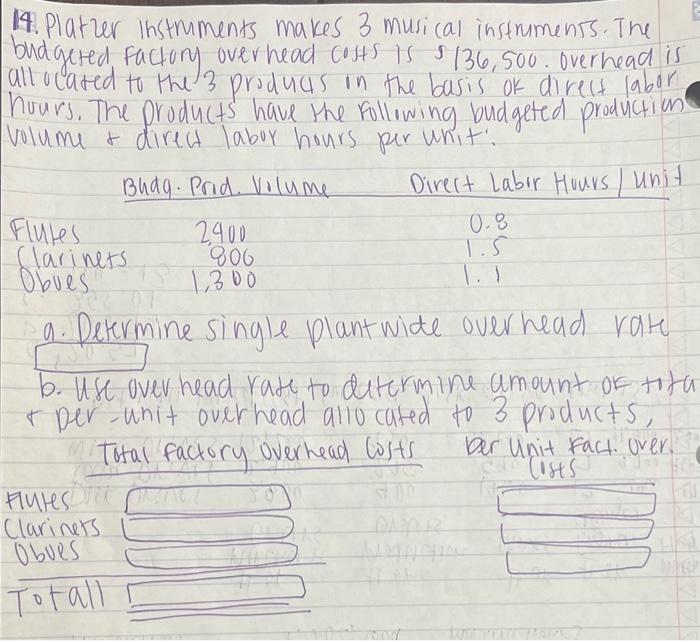 14. Platzer Instruments makes 3 musical instruments. The
budgeted factory overhead costs is $136,500. Overhead is
allocated to the 3 products on the basis of direct labor
hours. The products have the following budgeted production
volume & direct labor hours per unit:
Budg. Prod. Volume Direct Labor Hours / Unit
Flutes 2400 0.8
Clarinets 800 1.5
Oboes 1,300 1.1
a. Determine single plantwide overhead rate
b. Use overhead rate to determine amount of tota
& per-unit overhead allocated to 3 products,
Total Factory Overhead Costs per Unit Fact. Over.
Costs
Flutes
Clarinets
Oboes
Totall